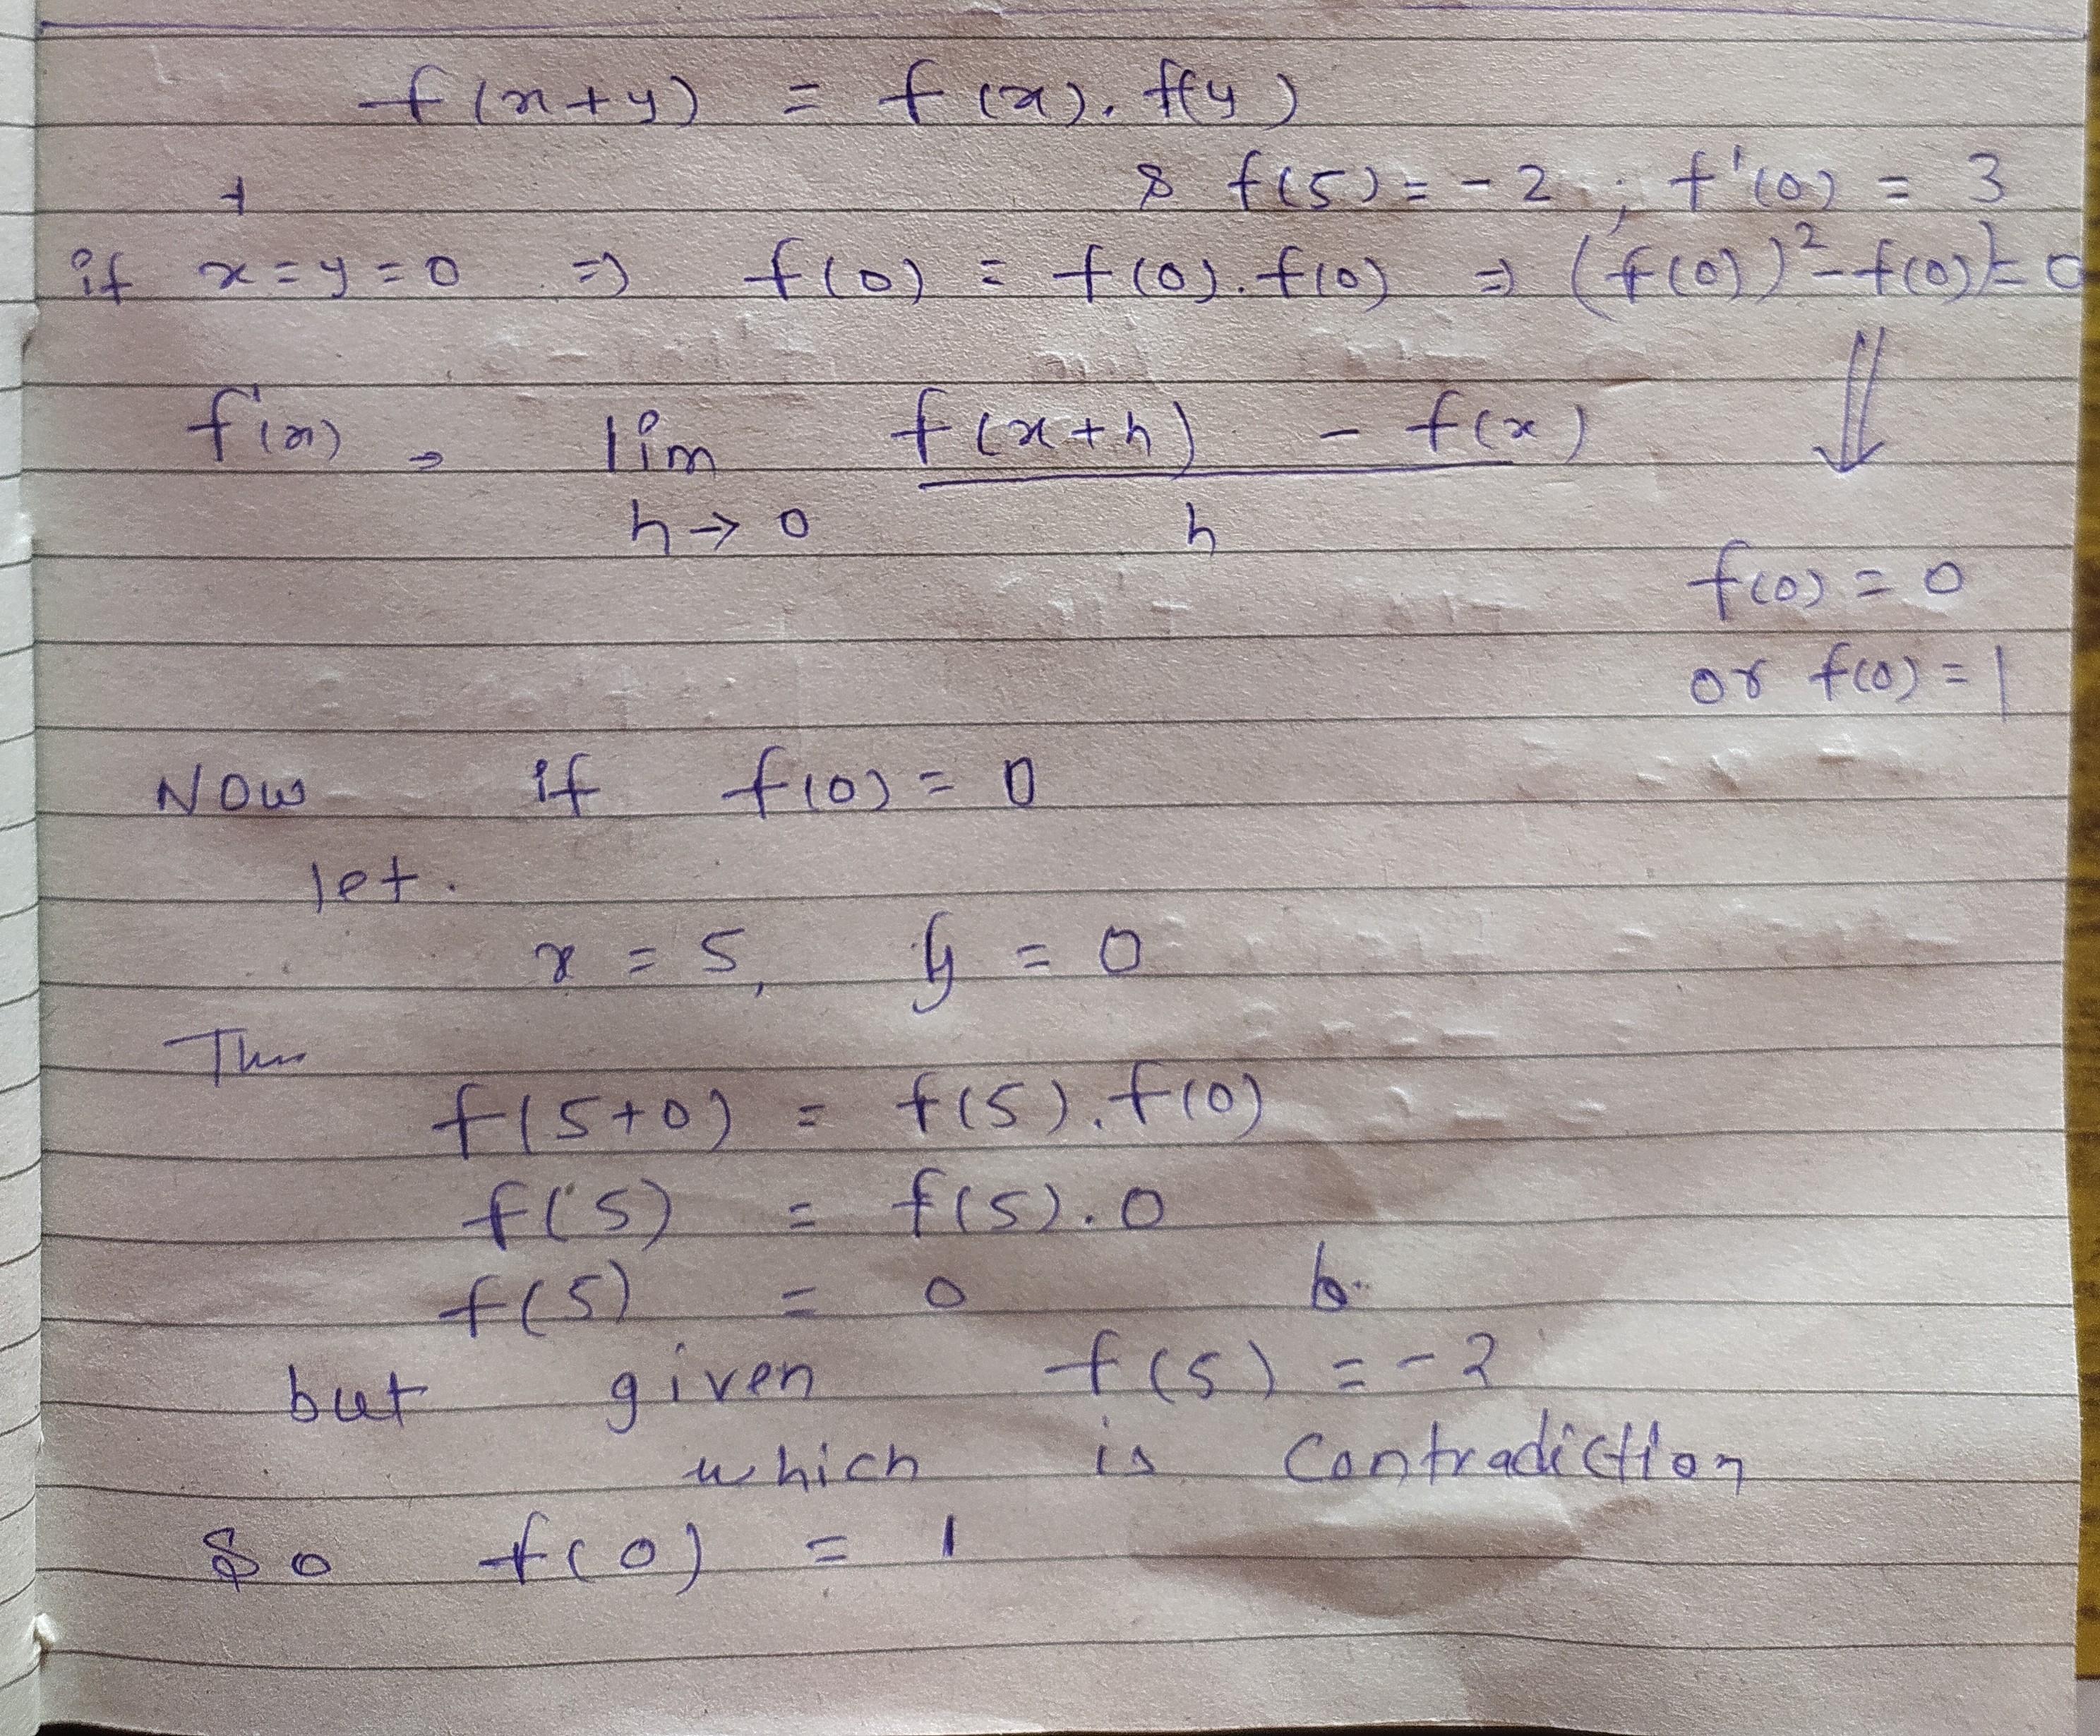 f(x+y) = f(x). f(y)
& f(5) = -2 ; f'(0) = 3
if x=y=0 => f(0) = f(0).f(0) => (f(0))²-f(0) = 0
f'(x) = lim f(x+h) - f(x)
h→0 h
⇓
f(0) = 0
or f(0) = 1
Now if f(0) = 0
let.
x = 5, y = 0
f(5+0) = f(5).f(0)
f(5) = f(5).0
f(5) = 0
but given f(5) = -2
which is contradiction
So f(0) = 1